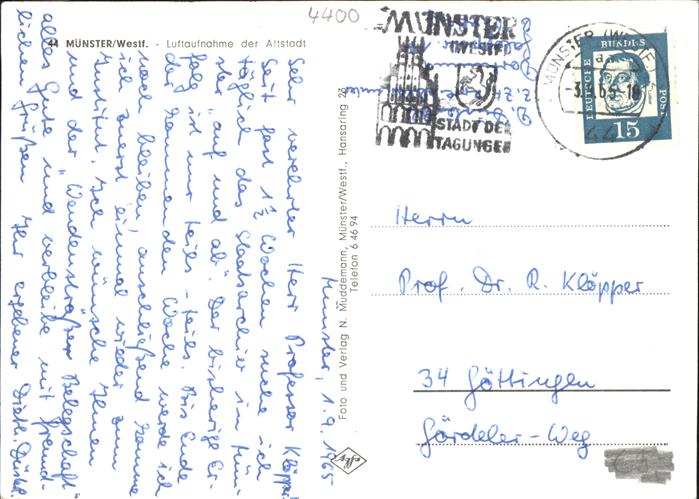 4400
44 MÜNSTER/Westf. - Luftaufnahme der Altstadt
Münster, 1.9.1965
Sehr verehrter Herr Professor Klöpper!
Seit fast 1½ Wochen suche ich
täglich das Staatsarchiv in Mün-
ster "auf und ab". Der bisherige Er-
folg ist nur teils-teils. Bis Ende
der kommenden Woche werde ich
noch bleiben, anschließend komme
ich zuerst einmal wieder zum
Institut. Ich wünsche Ihnen
und der "Wendenstraßen Belegschaft"
alles Gute und verbleibe mit freund-
lichen Grüßen Ihr ergebener
Foto und Verlag N. Muddemann, Münster/Westf., Hansaring 22
Telefon 6 46 94
MÜNSTER
(WESTF)
STADT DER
TAGUNGEN
MÜNSTER (WESTF)
DEUTSCHE BUNDESPOST
15
z. Zt.
Herrn
Prof. Dr. R. Klöpper
34 Göttingen
Gördeler-Weg